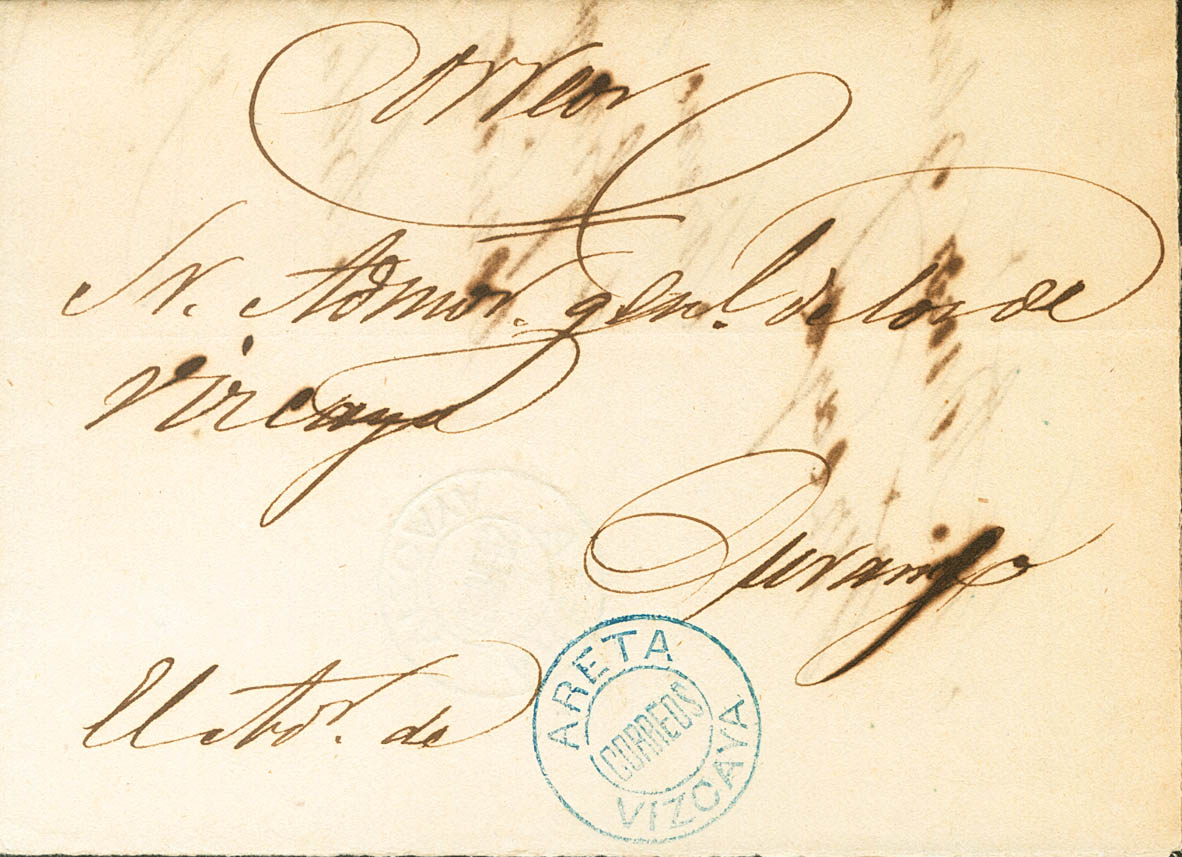 Correos
Sr. Admor. genl. de los de
Vizcaya
Durango
El Ador. de
ARETA
CORREOS
VIZCAYA